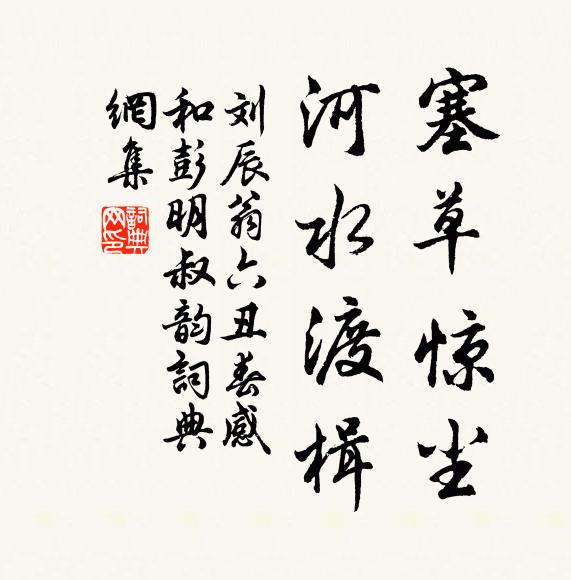 塞草惊尘
河水渡楫
刘辰翁六丑春感
和彭明叔韵詞典
網集
詞典网印